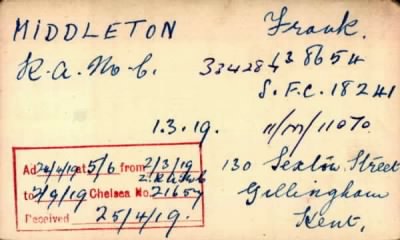 MIDDLETON Frank.
R.A. No 6. 334284 63 8654
S.F.C. 18241
1.3.19. 11/M/11070.
Ad 24/4/19 at 5/6 from 2/3/19
to 2/9/19 Chelsea No. 21657
Received 25/4/19.
130 Sexton Street
Gillingham
Kent.